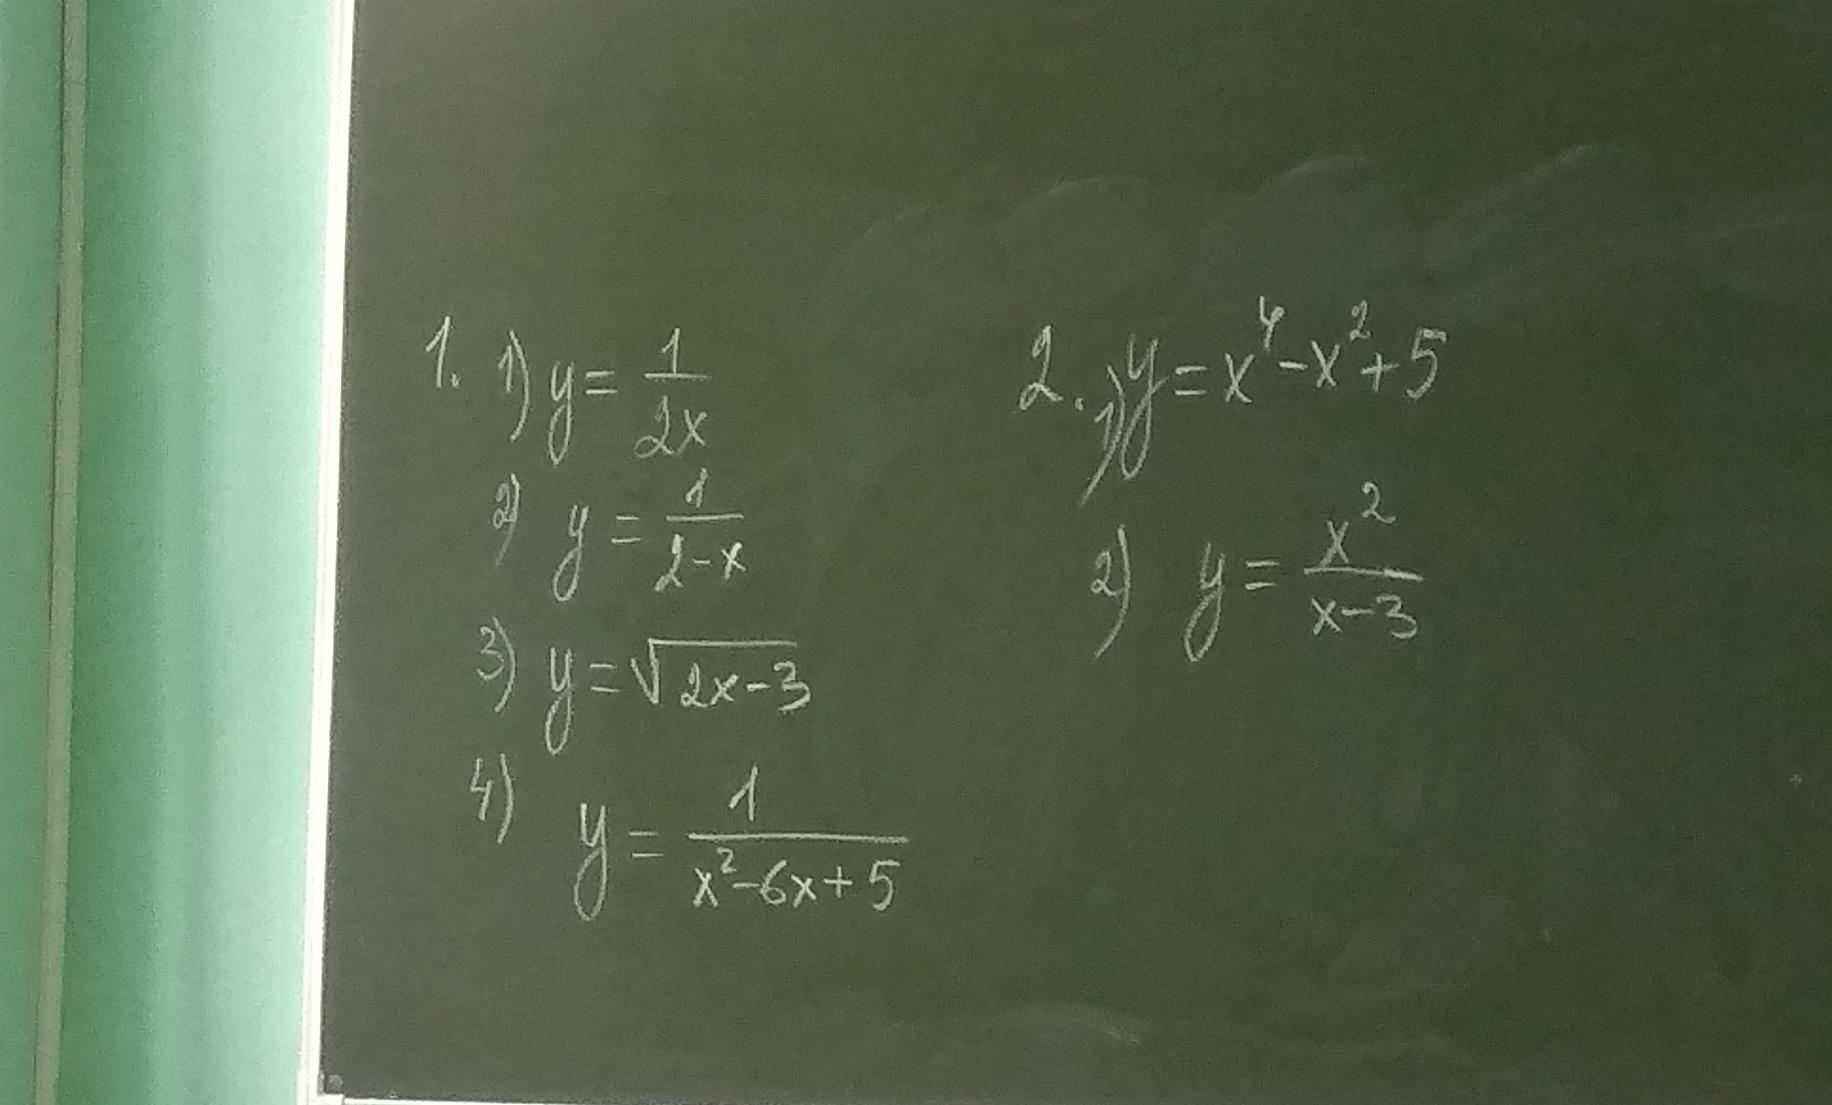 1. 1) y = 1/2x
2) y = 1/2-x
3) y = √2x-3
4) y = 1/x²-6x+5
2. 1) y = x⁴-x²+5
2) y = x²/x-3